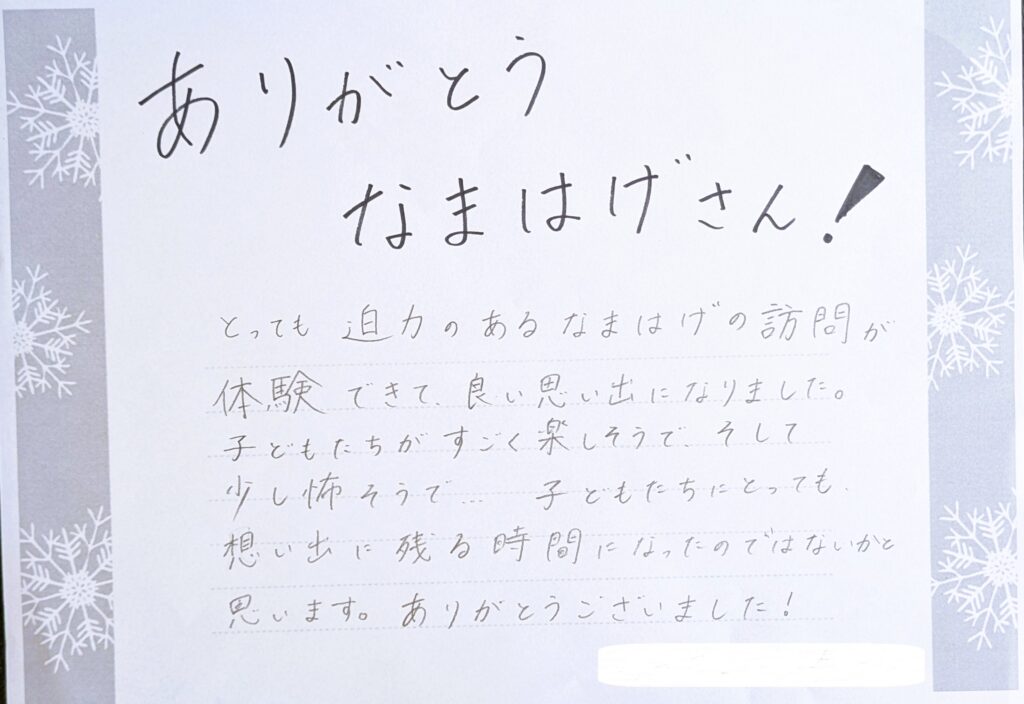 ありがとう
なまはげさん!
とっても 迫力のある なまはげの訪問が
体験できて、良い思い出になりました。
子どもたちがすごく楽しそうで、そして
少し怖そうで… 子どもたちにとっても、
想い出に残る時間になったのではないかと
思います。ありがとうございました!